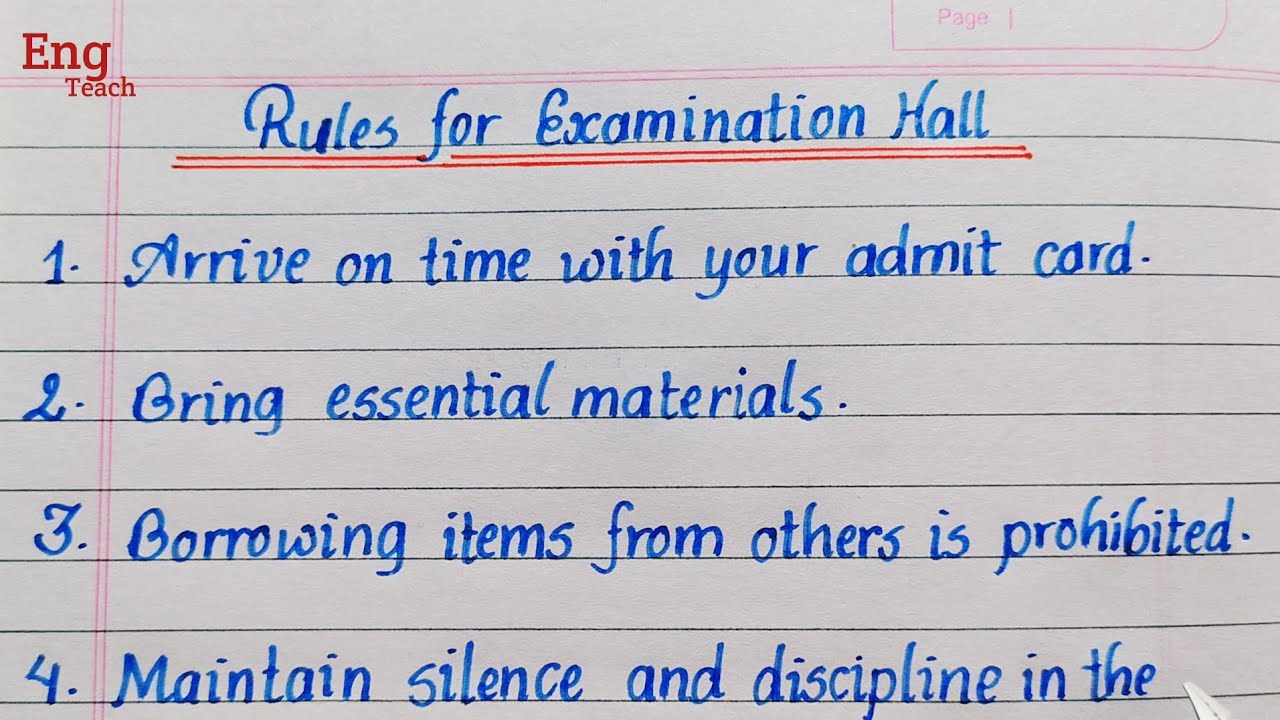 Page
Eng
Teach
Rules for Examination Hall
1. Arrive on time with your admit card.
2. Bring essential materials.
3. Borrowing items from others is prohibited.
4. Maintain silence and discipline in the